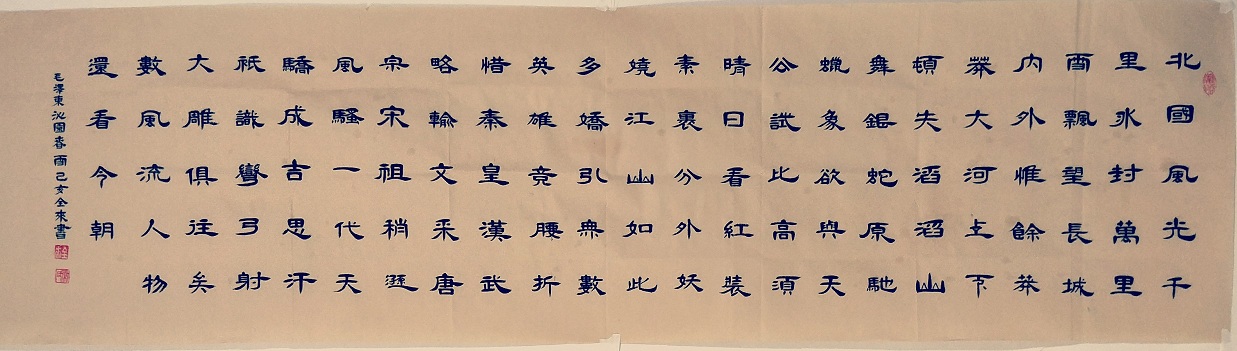 北國風光千
里冰封萬里
雪飄望長城
內外惟餘莽
莽大河上下
頓失滔滔山
舞銀蛇原馳
蠟象欲與天
公試比高須
晴日看紅裝
素裹分外妖
嬈江山如此
多嬌引無數
英雄竞腰折
惜秦皇漢武
略輸文采唐
宗宋祖稍遜
風騷一代天
驕成吉思汗
祇識彎弓射
大雕俱往矣
數風流人物
還看今朝
毛澤東沁園春雪己亥全來書